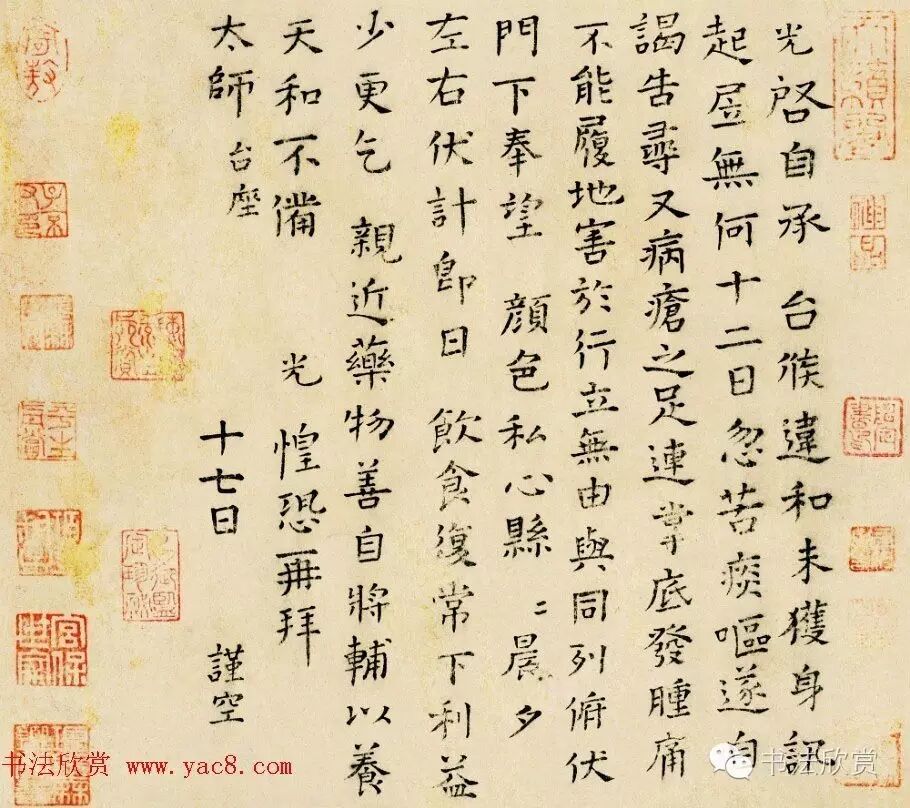 光啓自承 台候違和未獲身訊
起居無何十二日忽苦痰嘔遂自
謁告尋又病瘡之足連掌底發腫痛
不能履地害於行立無由與同列俯伏
門下奉望 顔色私心縣〻晨夕
左右伏計即日 飲食復常下利益
少更乞 親近藥物善自將輔以養
天和不備 光 惶恐再拜
太師 台座
十七日 謹空
书法欣赏 www.yac8.com
书法欣赏